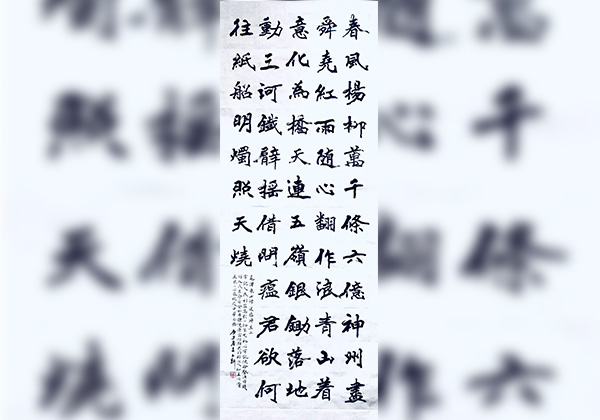 春風楊柳萬千條六億神州盡
舜堯紅雨随心翻作浪青山着
意化為橋天連五嶺銀鋤落地
動三河鐵臂摇借問瘟君欲何
往紙船明燭照天燒